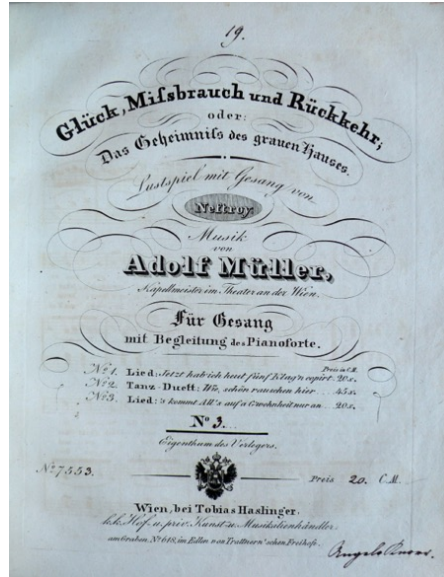 19.
Glück, Mißbrauch und Rückkehr;
oder:
Das Geheimniß des grauen Hauses.
Lustspiel mit Gesang von
Nestroy.
Musik
von
Adolf Müller,
Kapellmeister im Theater an der Wien.
Für Gesang
mit Begleitung des Pianoforte.
Preis in C.M.
No. 1. Lied: Jetzt hab ich heut fünf Klag'n copirt. 20x.
No. 2. Tanz-Duett: Wie, schön rauschen hier ... 45x.
No. 3. Lied: 's kommt All's auf a Gewohnheit nur an ... 20x.
No. 3.
Eigenthum des Verlegers.
No. 7553. Preis 20. C.M.
Wien, bei Tobias Haslinger.
k.k. Hof- u. priv. Kunst- u. Musikalienhändler.
am Graben, No. 618, im Edlen von Trattnern'schen Freihofe.